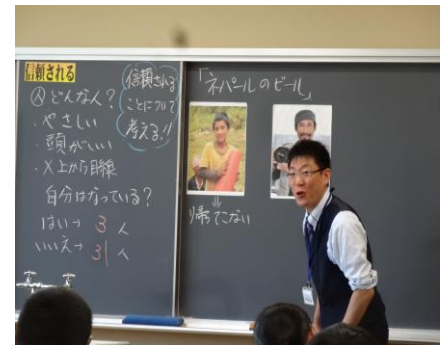 信頼される
人 どんな人？
・やさしい
・頭がいい
・×上から目線
自分はなっている？
はい→ 3 人
いいえ→ 31 人
信頼される
ことについて
考える!!
「ネパールのビール」
帰ってこない